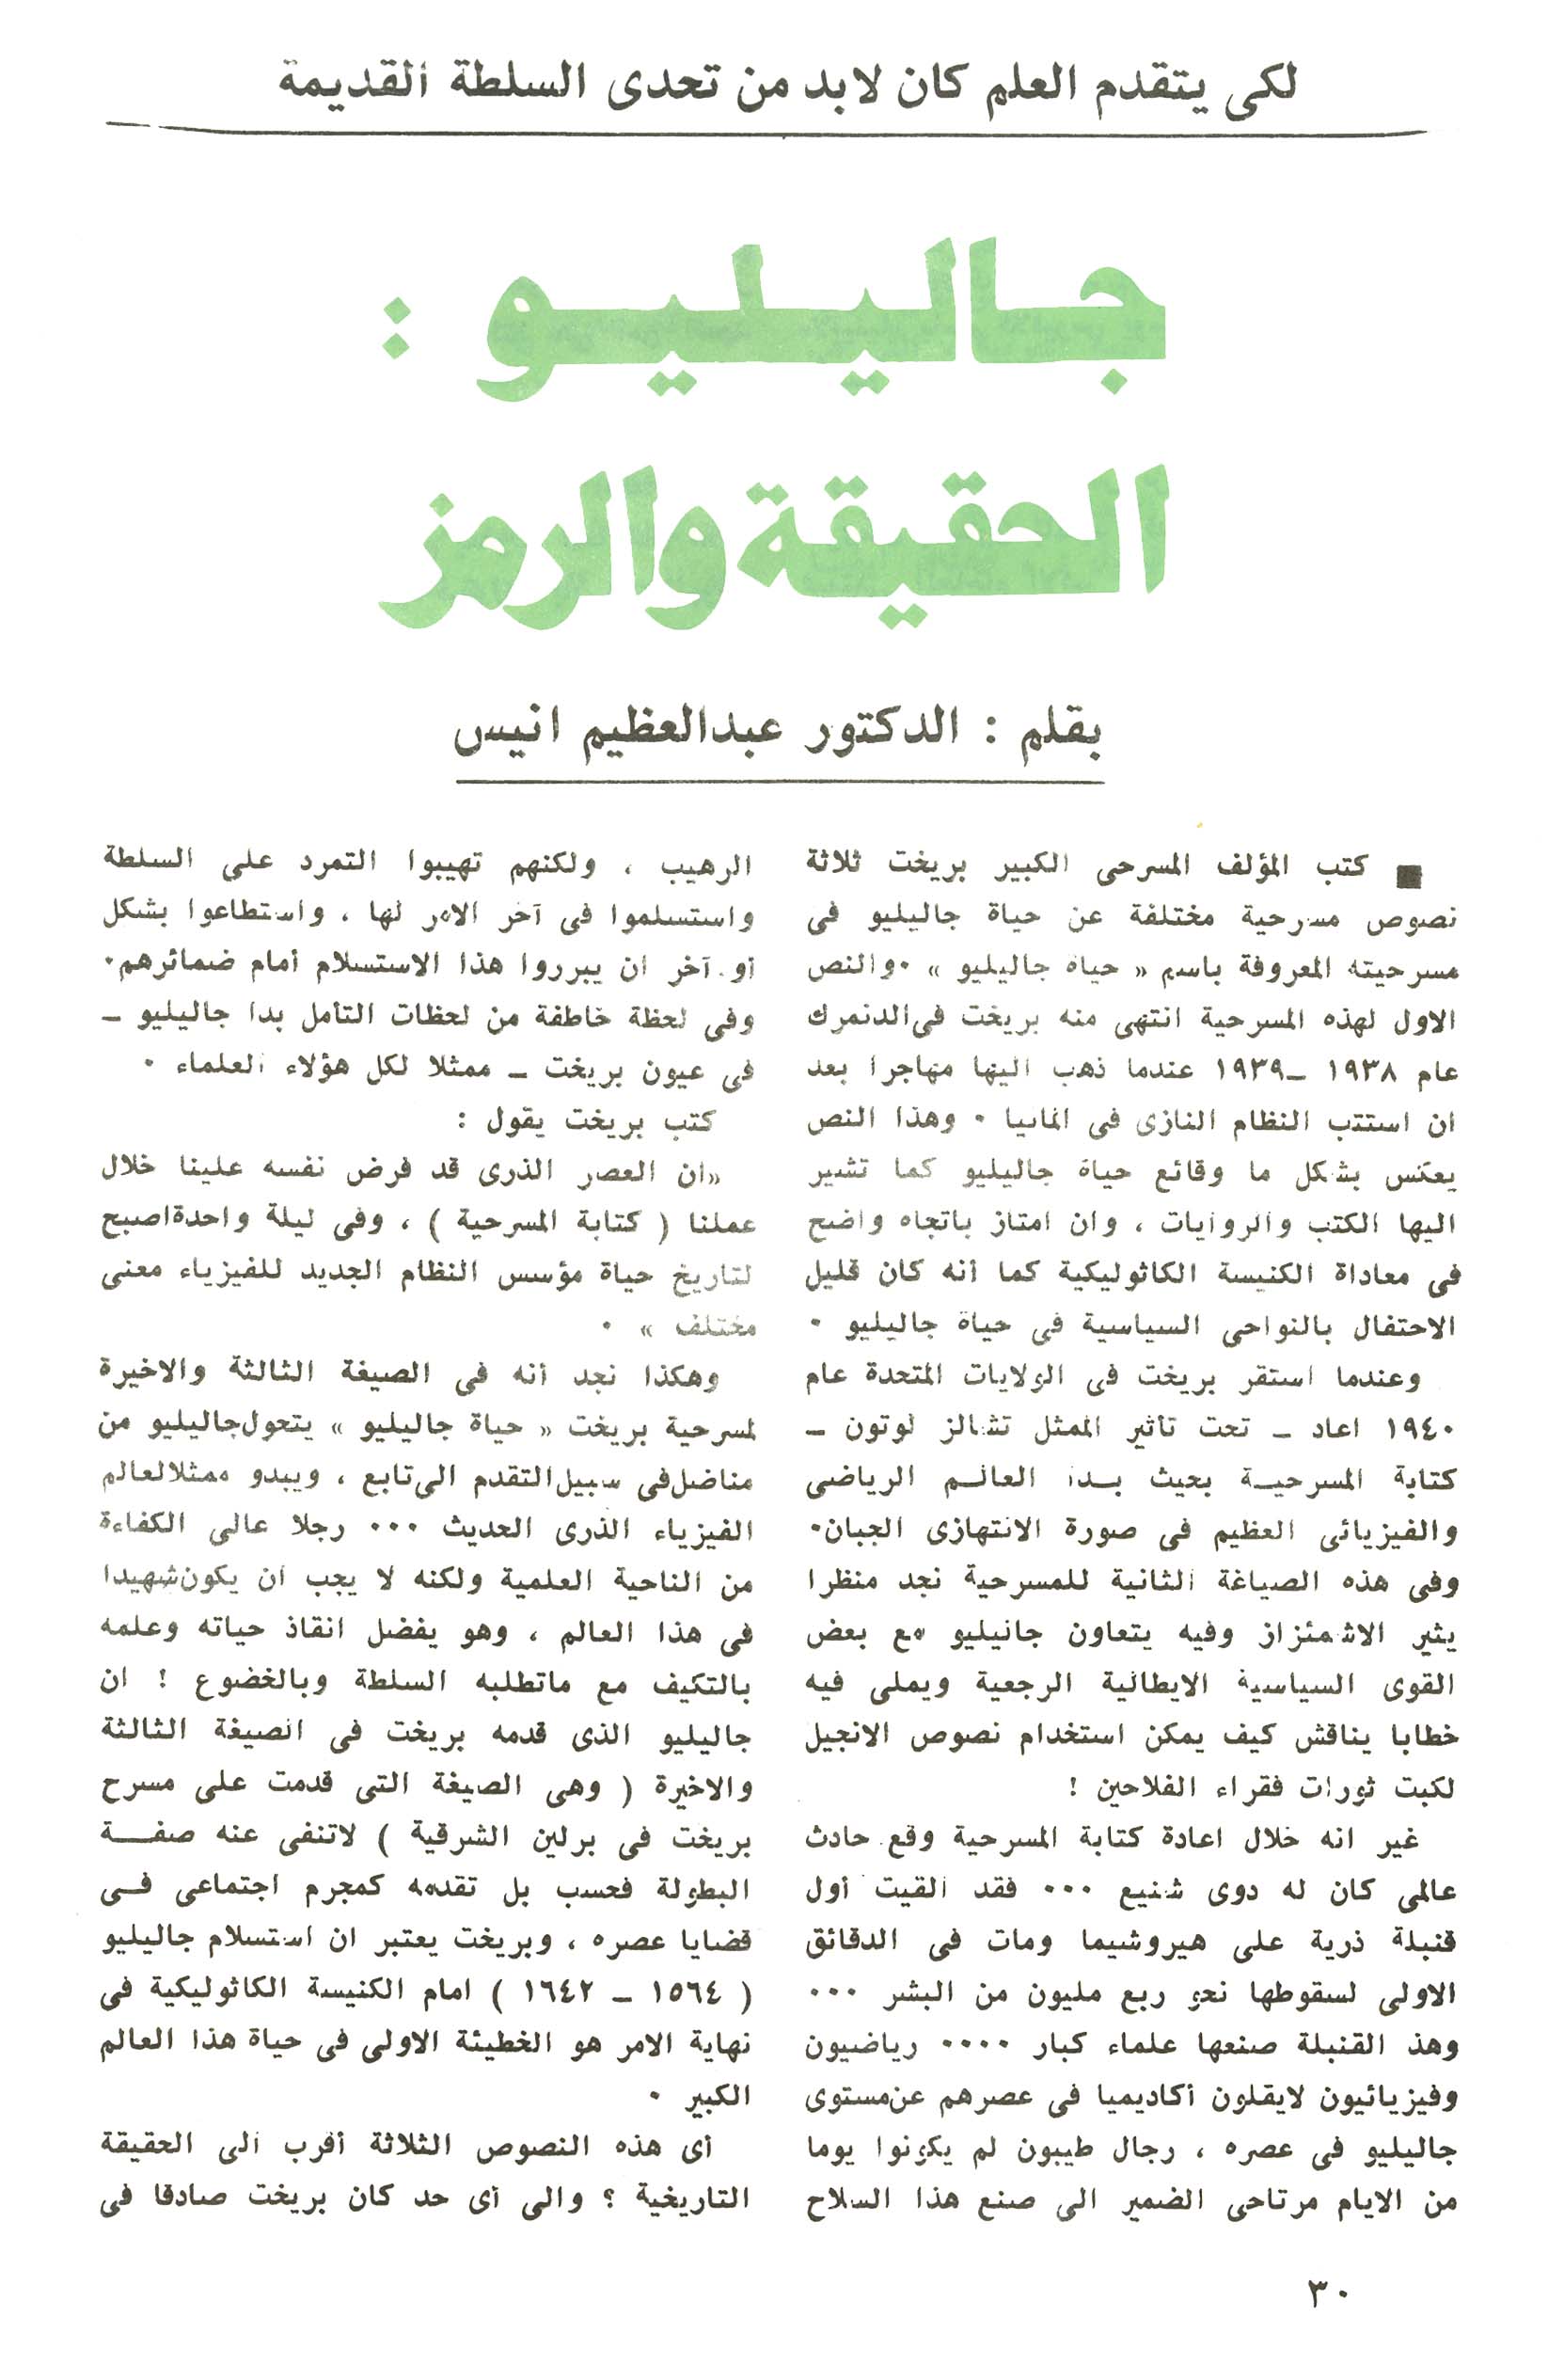 لكى يتقدم العلم كان لابد من تحدى السلطة القديمة
جاليليو :
الحقيقة والرمز
بقلم : الدكتور عبدالعظيم انيس
■ كتب المؤلف المسرحى الكبير بريخت ثلاثة
نصوص مسرحية مختلفة عن حياة جاليليو فى
مسرحيته المعروفة باسم « حياة جاليليو » ٠ والنص
الاول لهذه المسرحية انتهى منه بريخت فى الدنمرك
عام ١٩٣٨ ـ ١٩٣٩ عندما ذهب اليها مهاجرا بعد
ان استتب النظام النازى فى المانيا ٠ وهذا النص
يعكس بشكل ما وقائع حياة جاليليو كما تشير
اليها الكتب والروايات ، وان امتاز باتجاه واضح
فى معاداة الكنيسة الكاثوليكية كما أنه كان قليل
الاحتفال بالنواحى السياسية فى حياة جاليليو ٠
وعندما استقر بريخت فى الولايات المتحدة عام
١٩٤٠ اعاد ـ تحت تأثير الممثل تشالز لوتون ـ
كتابة المسرحيـة بحيث بـدا العالـم الرياضى
والفيزيائى العظيم فى صورة الانتهازى الجبان٠
وفى هذه الصياغة الثانية للمسرحية نجد منظرا
يثير الاشمئزاز وفيه يتعاون جاليليو مع بعض
القوى السياسية الايطالية الرجعية ويملى فيه
خطابا يناقش كيف يمكن استخدام نصوص الانجيل
لكبت ثورات فقراء الفلاحين !
غير انه خلال اعادة كتابة المسرحية وقع حادث
عالمى كان له دوى شنيع ٠٠٠ فقد القيت أول
قنبلة ذرية على هيروشيما ومات فى الدقائق
الاولى لسقوطها نحو ربع مليون من البشر ٠٠٠
وهذ القنبلة صنعها علماء كبار ٠٠٠٠ رياضيون
وفيزيائيون لايقلون أكاديميا فى عصرهم عن مستوى
جاليليو فى عصره ، رجال طيبون لم يكونوا يوما
من الايام مرتاحى الضمير الى صنع هذا السلاح
الرهيب ، ولكنهم تهيبوا التمرد على السلطة
واستسلموا فى آخر الامر لها ، واستطاعوا بشكل
أو آخر ان يبرروا هذا الاستسلام أمام ضمائرهم٠
وفى لحظة خاطفة من لحظات التأمل بدا جاليليو ـ
فى عيون بريخت ـ ممثلا لكل هؤلاء العلماء ٠
كتب بريخت يقول :
«ان العصر الذرى قد فرض نفسه علينا خلال
عملنا ( كتابة المسرحية ) ، وفى ليلة واحدة اصبح
لتاريخ حياة مؤسس النظام الجديد للفيزياء معنى
مختلف » ٠
وهكذا نجد أنه فى الصيغة الثالثة والاخيرة
لمسرحية بريخت « حياة جاليليو » يتحول جاليليو من
مناضل فى سبيل التقدم الى تابع ، ويبدو ممثلا لعالم
الفيزياء الذرى الحديث ٠٠٠ رجلا عالى الكفاءة
من الناحية العلمية ولكنه لا يجب ان يكون شهيدا
فى هذا العالم ، وهو يفضل انقاذ حياته وعلمه
بالتكيف مع ماتطلبه السلطة وبالخضوع ! ان
جاليليو الذى قدمه بريخت فى الصيغة الثالثة
والاخيرة ( وهى الصيغة التى قدمت على مسرح
بريخت فى برلين الشرقية ) لاتنفى عنه صفـــة
البطولة فحسب بل تقدمه كمجرم اجتماعى فـى
قضايا عصره ، وبريخت يعتبر ان استسلام جاليليو
( ١٥٦٤ ـ ١٦٤٢ ) امام الكنيسة الكاثوليكية فى
نهاية الامر هو الخطيئة الاولى فى حياة هذا العالم
الكبير ٠
أى هذه النصوص الثلاثة أقرب الى الحقيقة
التاريخية ؟ والى أى حد كان بريخت صادقا فى
٣٠